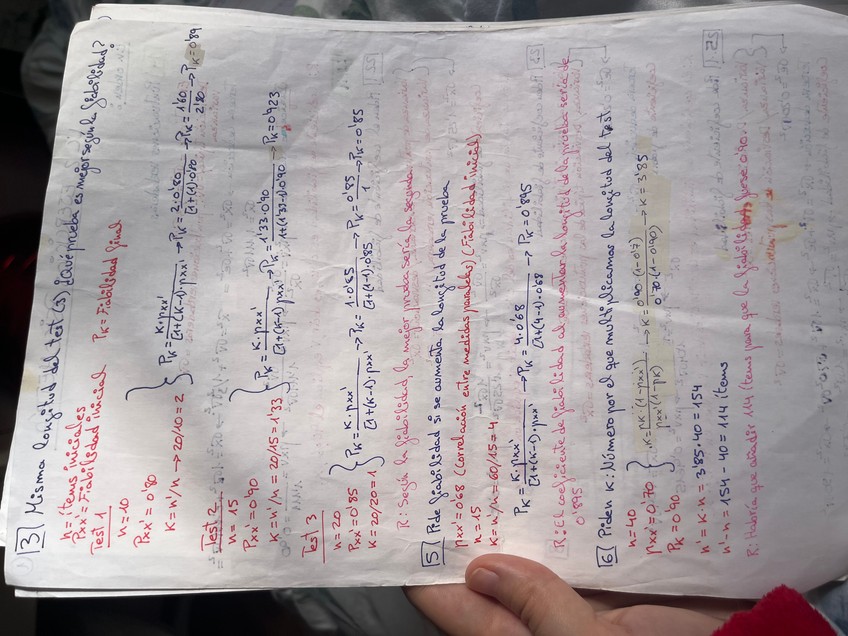 3 Misma longitud del test (3) ¿Qué prueba es mejor según la fiabilidad?
n = ítems iniciales
Pxx' = Fiabilidad inicial Pk = Fiabilidad final
Test 1
n = 10
Pxx' = 0'80
K = n'/n → 20/10 = 2
Pk = K·pxx' / [1+(K-1)pxx'] → Pk = 2·0'80 / [1+(1)·0'80] → Pk = 1'60 / 2'80 → Pk = 0'89
Test 2
n = 15
Pxx' = 0'90
K = n'/n = 20/15 = 1'33
Pk = K·pxx' / [1+(K-1)pxx'] → Pk = 1'33·0'90 / 1+(1'33-1)·0'90 → Pk = 0'923
Test 3
n = 20
Pxx' = 0'85
K = 20/20 = 1
Pk = K·pxx' / [1+(K-1)·pxx'] → Pk = 1·0'85 / [1+(1-1)·0.85] → Pk = 0'85 / 1 → Pk = 0'85
R: Según la fiabilidad, la mejor prueba sería la segunda
5 Pide fiabilidad si se aumenta la longitud de la prueba
pxx' = 0'68 (Correlación entre medidas paralelas) (Fiabilidad inicial)
n = 15
K = n'/n = 60/15 = 4
Pk = K·pxx' / [1+(K-1)·pxx'] → Pk = 4·0.68 / 1+(4-1)·0.68 → Pk = 0'895
R: El coeficiente de fiabilidad al aumentar la longitud de la prueba sería de
0'895
6 Piden K: Número por el que multiplicamos la longitud del test
n = 40
pxx' = 0'70
Pk = 0'90
K = pk·(1-pxx') / pxx'(1-pk) → K = 0'90·(1-0'7) / 0'70·(1-0'90) → K = 3'85
n' = K·n = 3'85·40 = 154
n'-n = 154 - 40 = 114 ítems
R: Habría que añadir 114 ítems para que la fiabilidad fuese 0'90